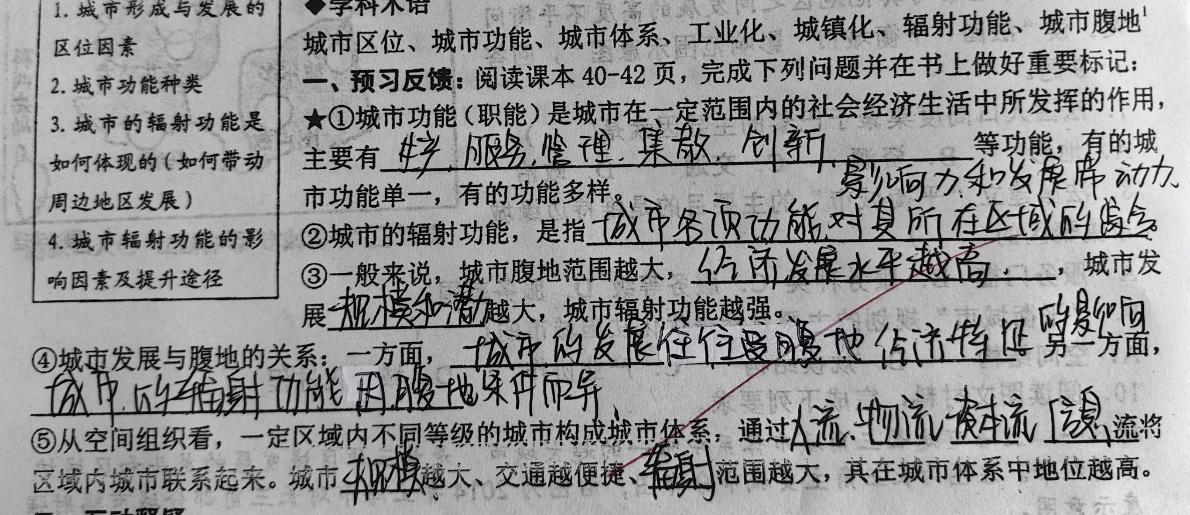 1. 城市形成与发展的
区位因素
2. 城市功能种类
3. 城市的辐射功能是
如何体现的（如何带动
周边地区发展）
4. 城市辐射功能的影
响因素及提升途径
◆学科术语
城市区位、城市功能、城市体系、工业化、城镇化、辐射功能、城市腹地
一、预习反馈：阅读课本 40-42 页，完成下列问题并在书上做好重要标记：
★①城市功能（职能）是城市在一定范围内的社会经济生活中所发挥的作用，
主要有 生产、服务、管理、集散、创新、 等功能，有的城
市功能单一，有的功能多样。 影响力和发展带动力
②城市的辐射功能，是指 城市各项功能对其所在区域的
③一般来说，城市腹地范围越大， 经济发展水平越高 ，城市发
展 规模和潜力 越大，城市辐射功能越强。
④城市发展与腹地的关系：一方面， 城市的发展往往受腹地经济特征的影响 另一方面，
城市的辐射功能因腹地条件而异
⑤从空间组织看，一定区域内不同等级的城市构成城市体系，通过 人流、物流、资本流、信息 流将
区域内城市联系起来。城市 规模 越大、交通越便捷、 辐射 范围越大，其在城市体系中地位越高。